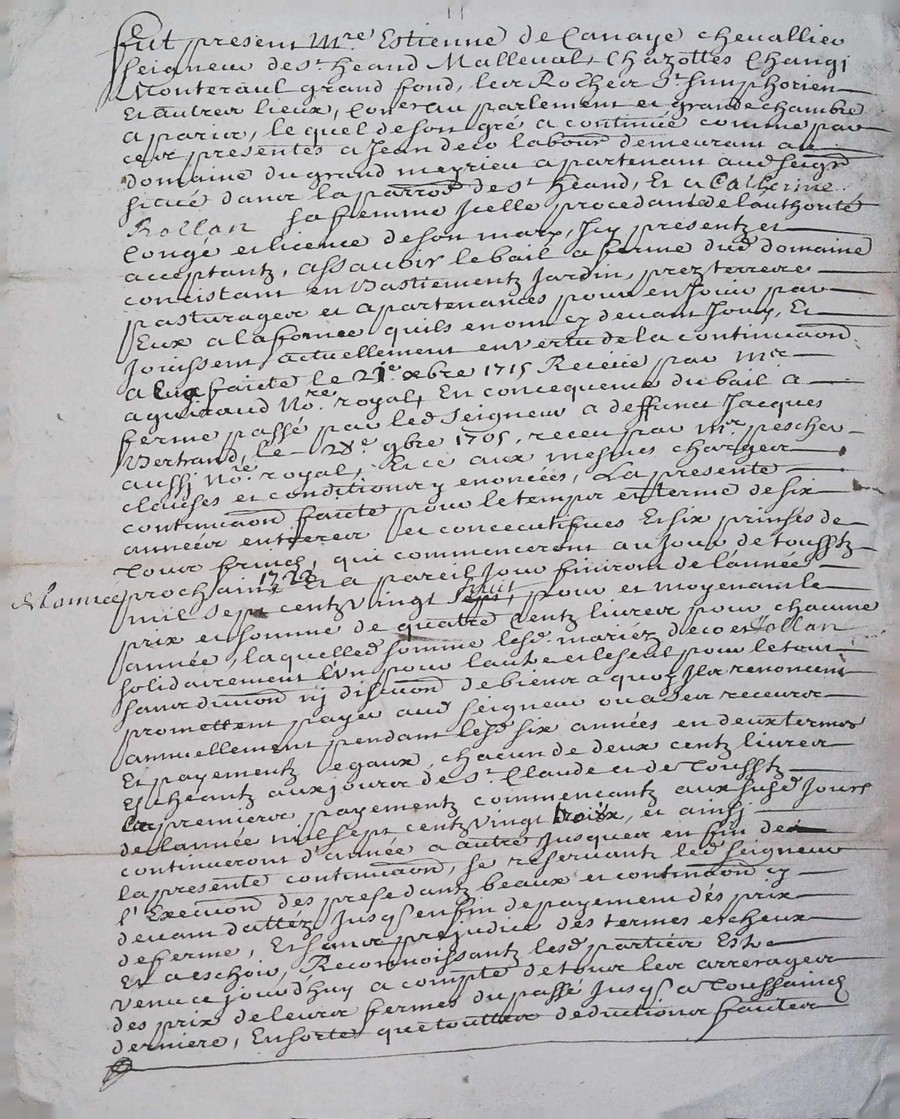 Fut present Mre Estienne de Canaye chevallier
seigneur de St heand Malleval, Chazottes Changi
Monteraul grand fond, les Rocher St Simphorien
Et autres lieux, Coner au parlement et grande chambre
a paris, lequel de son gré a continüé comme par
ces presentes a Jean deco labour demeurant au
domaine du grand meyrieu apartenant aud seigr
sictüé dans la parrose de St heand, Et a Catherine
Rollan sa femme Jcelle procedante de l'authorité
Congé et licence de son mary, Jcy presentz et
acceptantz, assavoir le bail a ferme dud domaine
concistant en Bastiementz Jardin, prez terres
pasturages et apartenances pour en Jouir par
Eux a la formee quils en ont cy devant Jouy, Et
Jouissent actuellement en vertu de la continuaon
a Eux faitte le 21e xbre 1715 Recüe par mr
aguiraud Nre royal, En concequence du bail a
ferme passé par led Seigneur a deffunct Jacques
Bertrand, le 28e 9bre 1705, receu par mr pescher
aussj Nre royal, Et ce aux mesmes charges
clauses et conditions y enoncées, La presente
continuaon faitte pour le temps et terme de six
années entieres et concecutifves Et six prinses de
tous fruicz, qui commenceront au Jour de tousstz
de l'année prochain 1722 Et a pareil Jour finiront de l'année
mil sept centz vingt huit, pour et moyenant le
prix et somme de quattre centz livres pour chacune
année, laquelle somme lesd mariéz deco et Rollan
solidairement l'un pour l'autre et le seul pour le tout
sans divion nj discuon de biens a quoy Jls renoncent
promettent payer aud seigneur ou a ses receveurs
annuellement pendant lesd six années en deux termes
Et payementz egaux, chacun de deux centz livres
Escheantz aux jours de St Claude et de Tousstz
Les premiers payementz commençantz aux susd Jours
de l'année mil sept centz vingt trois, et ainsi
continueront d'année a autre Jusques en fin de
la presente continuaon, se reservantz led seigneur
l'Execuon des presedantz beaux et continuaon cy
devant dattéz Jusqs en fin de payement dés prix
de ferme, Et sans prejudice des termes escheux
Et a eschoir, Reconnoissantz lesd partiés Estre
venu ce jourd'huy a compte de tous les arrerages
des prix de leurs fermes du passé Jusqs a Toussainctz
derniere, En sorte que touttes deductions faites